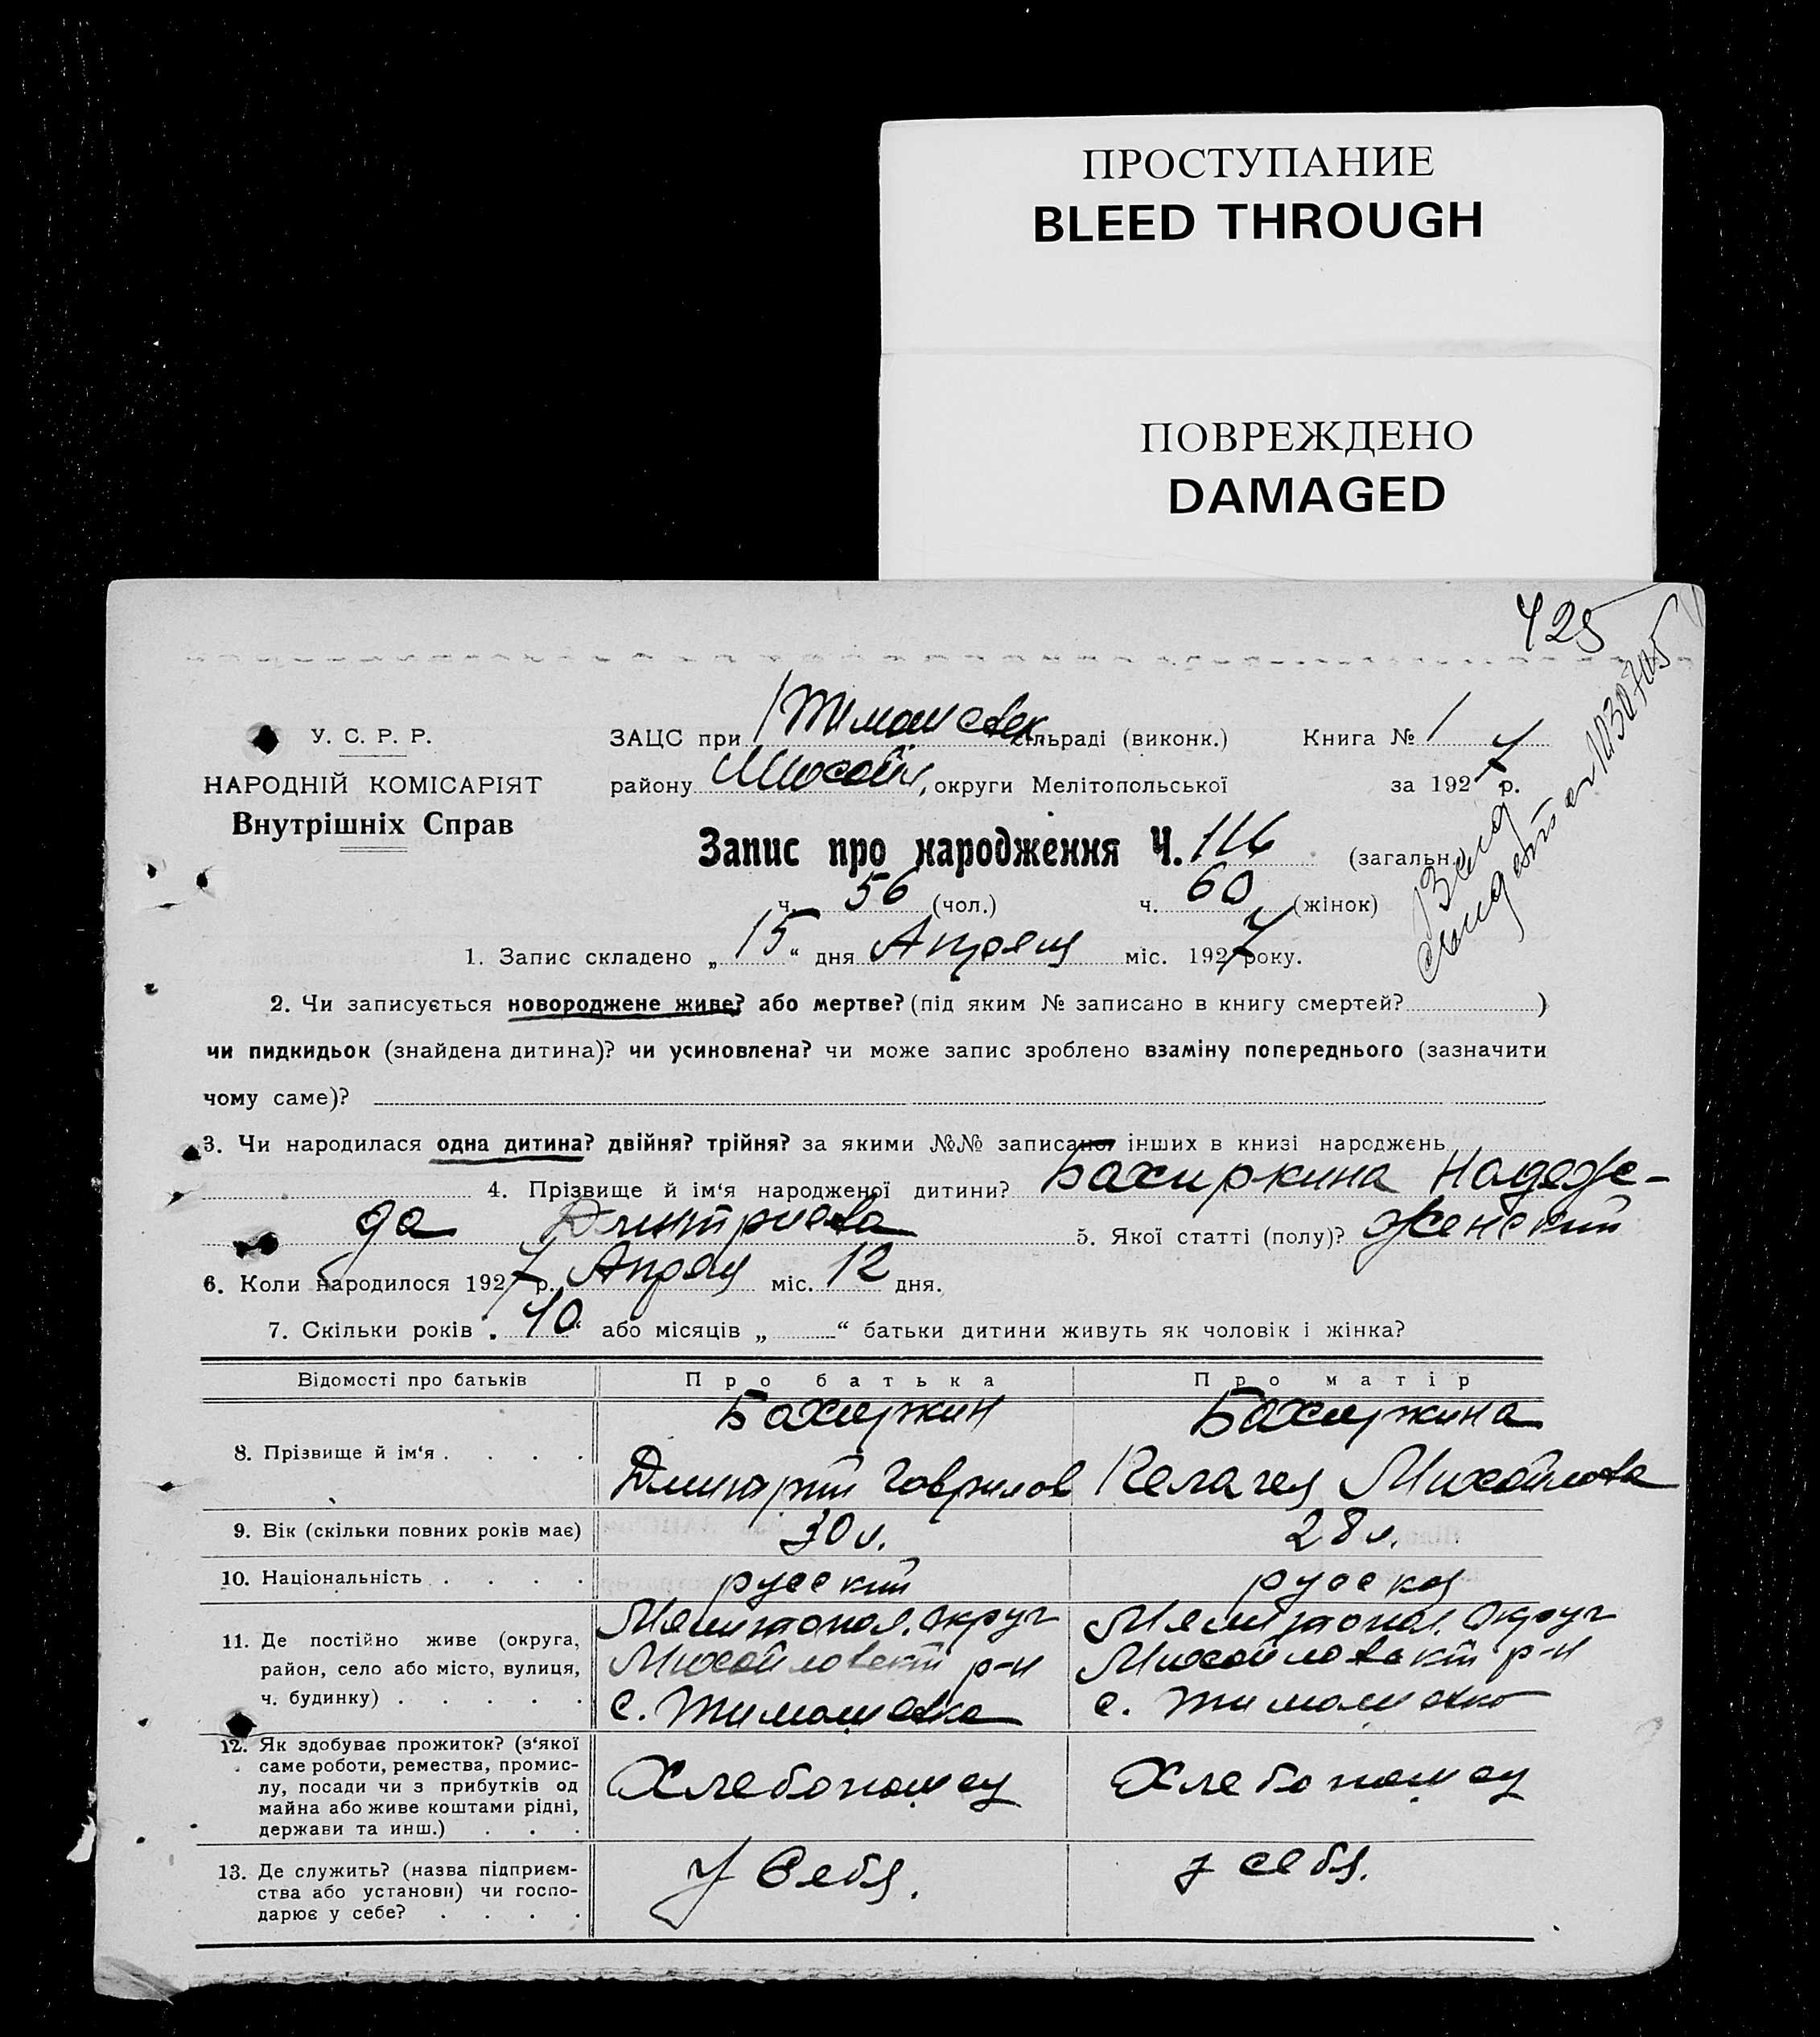 ПРОСТУПАНИЕ
BLEED THROUGH
ПОВРЕЖДЕНО
DAMAGED
425
У. С. Р. Р.
НАРОДНІЙ КОМІСАРІЯТ
Внутрішніх Справ
ЗАЦС при Тимошевск. сільраді (виконк.) Книга № 1
району Михайл, округи Мелітопольської за 1927 р.
Запис про народження Ч. 116 (загальн.)
ч. 56 (чол.) ч. 60 (жінок)
1. Запис складено „ 15 “ дня Апреля міс. 1927 року.
2. Чи записується новороджене живе? або мертве? (під яким № записано в книгу смертей? )
чи пидкидьок (знайдена дитина)? чи усиновлена? чи може запис зроблено взаміну попереднього (зазначити
чому саме)?
3. Чи народилася одна дитина? двійня? трійня? за якими №№ записаної інших в книзі народжень
4. Прізвище й ім‘я народженої дитини? Бахиркина Надеж-
да Дмитриева 5. Якої статті (полу)? Женский
6. Коли народилося 1927 р. Апреля міс. 12 дня.
7. Скільки років „ 10 “ або місяців „ “ батьки дитини живуть як чоловік і жінка?
Відомості про батьків Про батька Про матір
8. Прізвище й ім‘я . . . . Бахиркин Бахиркина
Дмитрий Гаврилов Пелагея Михайлова
9. Вік (скільки повних років має) 30 л. 28 л.
10. Національність . . . . русский русская
11. Де постійно живе (округа, Мелитопол. округ Мелитопол. округ
район, село або місто, вулиця, Михайловский р-н Михайловский р-н
ч. будинку) . . . . . с. Тимошевка с. Тимошевка
12. Як здобуває прожиток? (з‘якої
саме роботи, ремества, промис-
лу, посади чи з прибутків од Хлебопашец Хлебопашец
майна або живе коштами рідні,
держави та инш.) . . .
13. Де служить? (назва підприєм- У себя. у себя.
ства або установи) чи госпо-
дарює у себе? . . . .